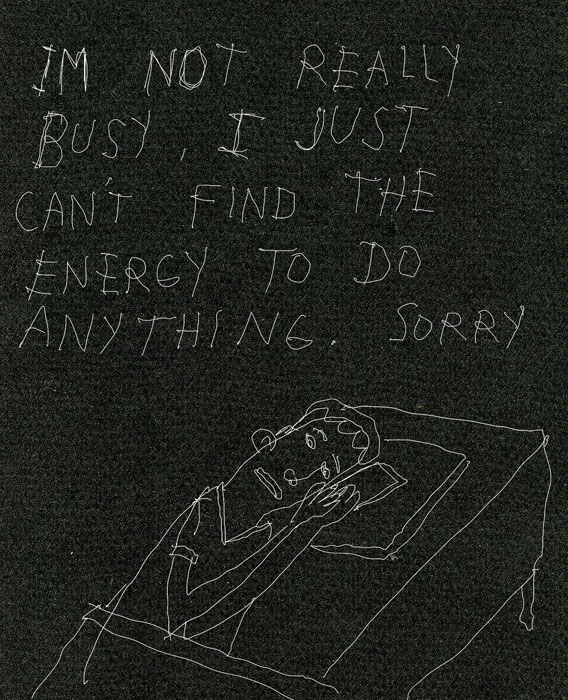 IM NOT REALLY
BUSY, I JUST
CAN'T FIND THE
ENERGY TO DO
ANYTHING. SORRY